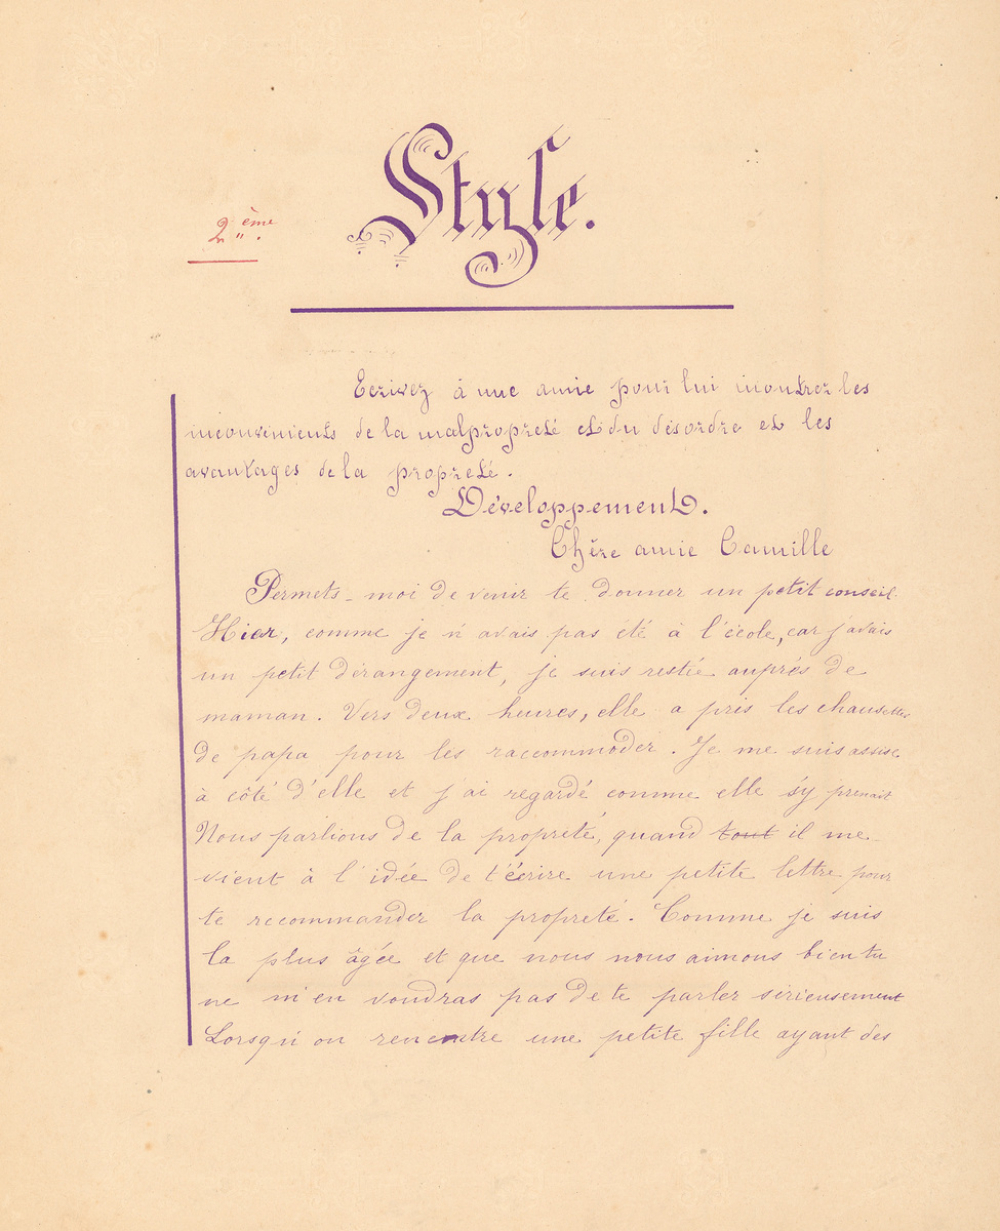 Style.
2ème.
Ecrivez à une amie pour lui montrer les
inconvénients de la malpropreté et du désordre et les
avantages de la propreté.
Développement.
Chère amie Camille
Permets-moi de venir te donner un petit conseil.
Hier, comme je n'avais pas été à l'école, car j'avais
un petit dérangement, je suis restée auprès de
maman. Vers deux heures, elle a pris les chaussettes
de papa pour les raccommoder. Je me suis assise
à côté d'elle et j'ai regardé comme elle s'y prenait
Nous parlions de la propreté, quand tout il me
vient à l'idée de t'écrire une petite lettre pour
te recommander la propreté. Comme je suis
la plus âgée et que nous nous aimons bien tu
ne m'en voudras pas de te parler sérieusement
Lorsqu'on rencontre une petite fille ayant des